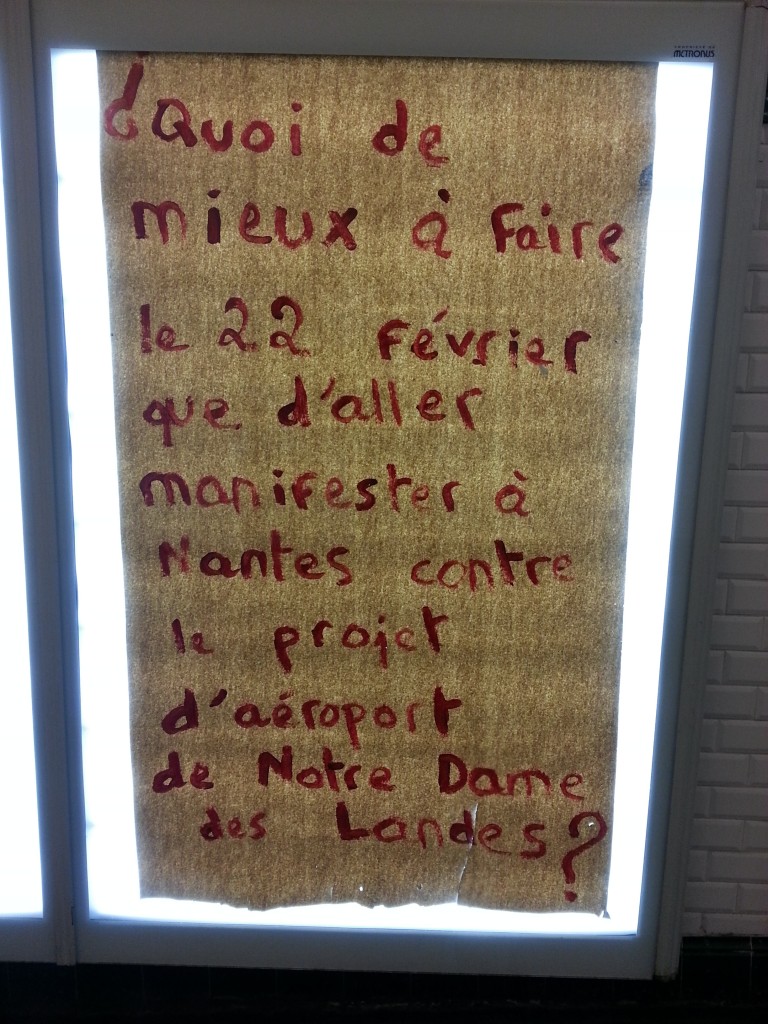 METROBUS
¿Quoi de
mieux à Faire
le 22 Février
que d'aller
manifester à
Nantes contre
le projet
d'aéroport
de Notre Dame
des Landes ?